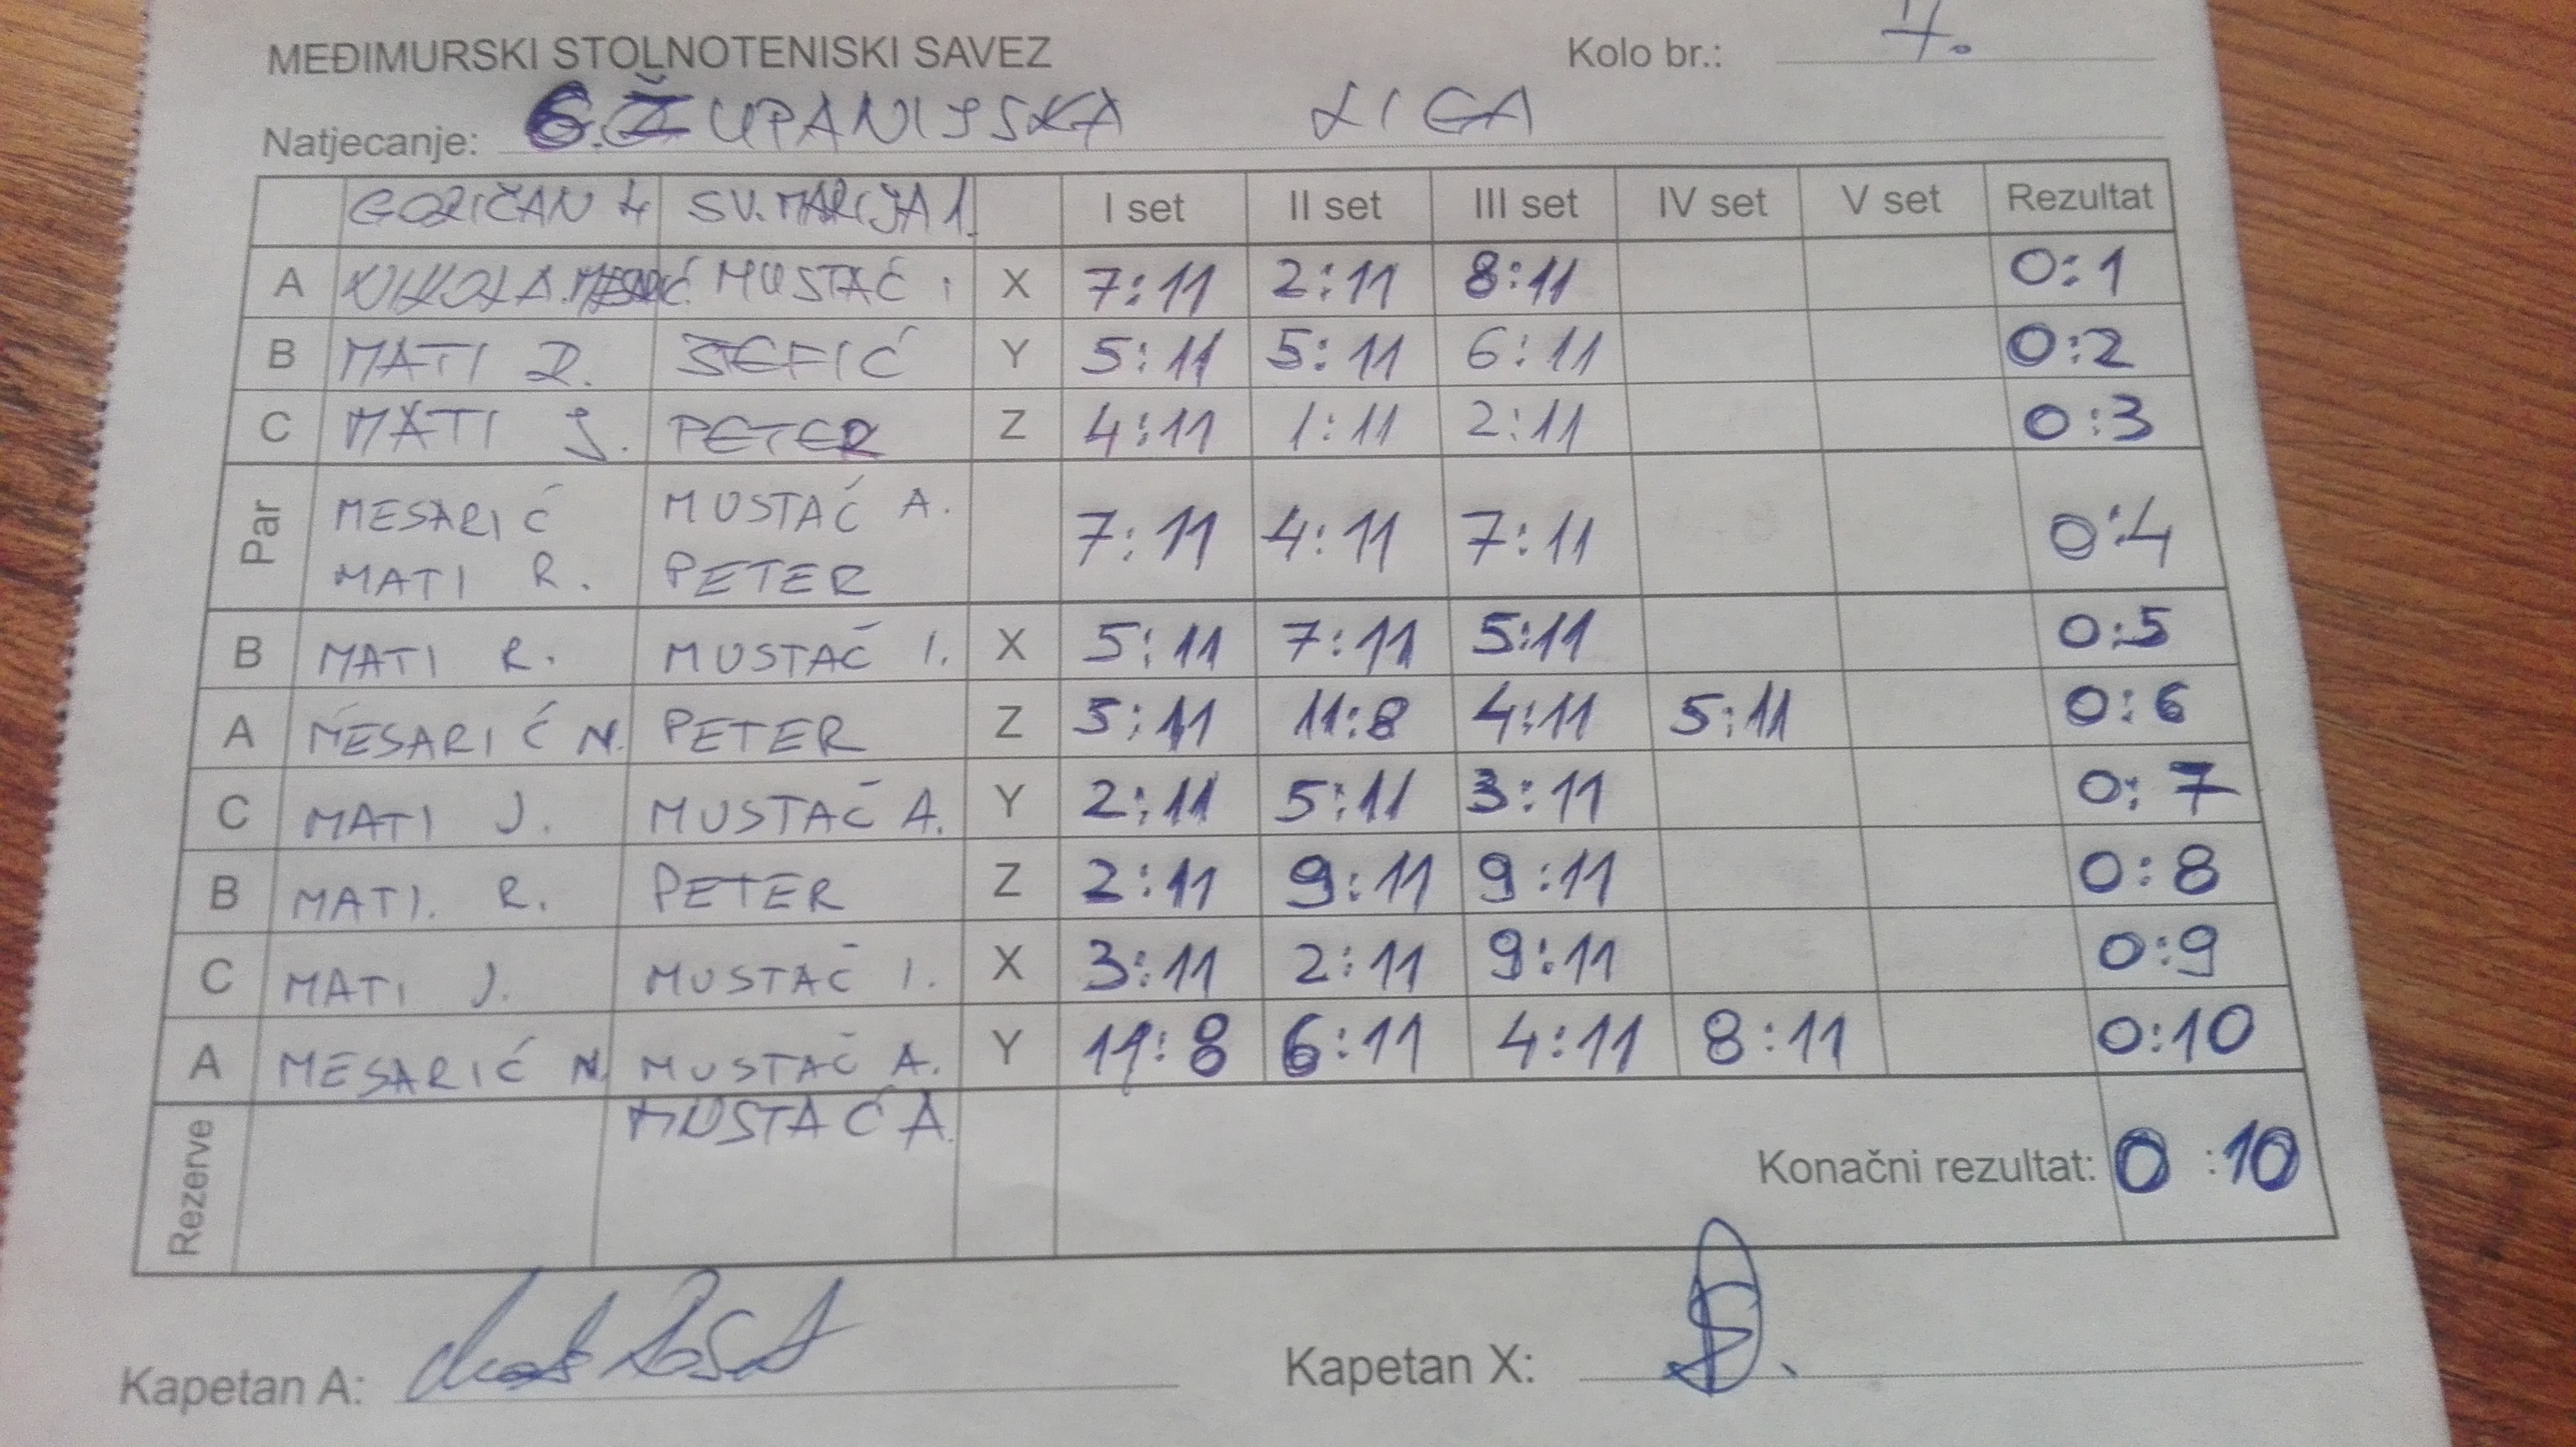 MEĐIMURSKI STOLNOTENISKI SAVEZ Kolo br.: 7.
Natjecanje: 6. ŽUPANIJSKA LIGA
GORIČAN 4 SV. MARIJA 1. I set II set III set IV set V set Rezultat
A NIKOLA MUSTAČ I X 7:11 2:11 8:11 0:1
B MATI R. ŠEFIĆ Y 5:11 5:11 6:11 0:2
C MATI J. PETER Z 4:11 1:11 2:11 0:3
Par MESARIĆ MUSTAĆ A. 7:11 4:11 7:11 0:4
MATI R. PETER
B MATI R. MUSTAČ I. X 5:11 7:11 5:11 0:5
A MESARIĆ N. PETER Z 5:11 11:8 4:11 5:11 0:6
C MATI J. MUSTAČ A. Y 2:11 5:11 3:11 0:7
B MATI. R. PETER Z 2:11 9:11 9:11 0:8
C MATI J. MUSTAČ I. X 3:11 2:11 9:11 0:9
A MESARIĆ N. MUSTAČ A. Y 11:8 6:11 4:11 8:11 0:10
Rezerve MUSTAĆ A.
Konačni rezultat: 0:10
Kapetan A: Kapetan X: